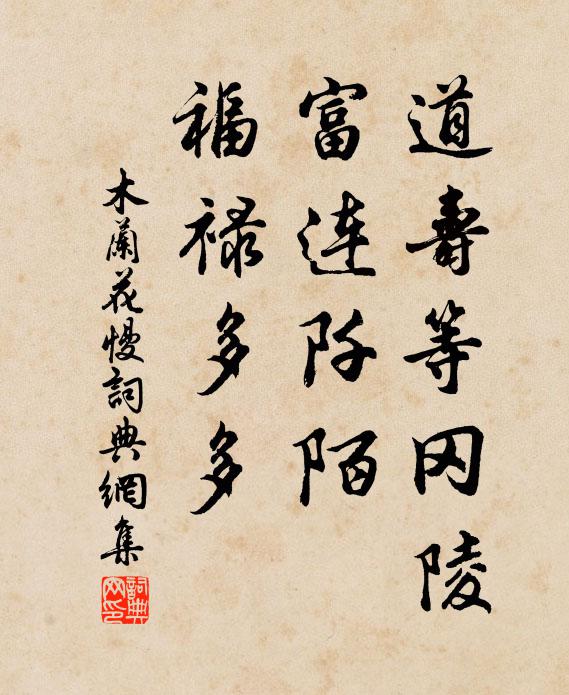 道壽等冈陵
富連阡陌
福禄多多
木蘭花慢詞典網集
詞典网印